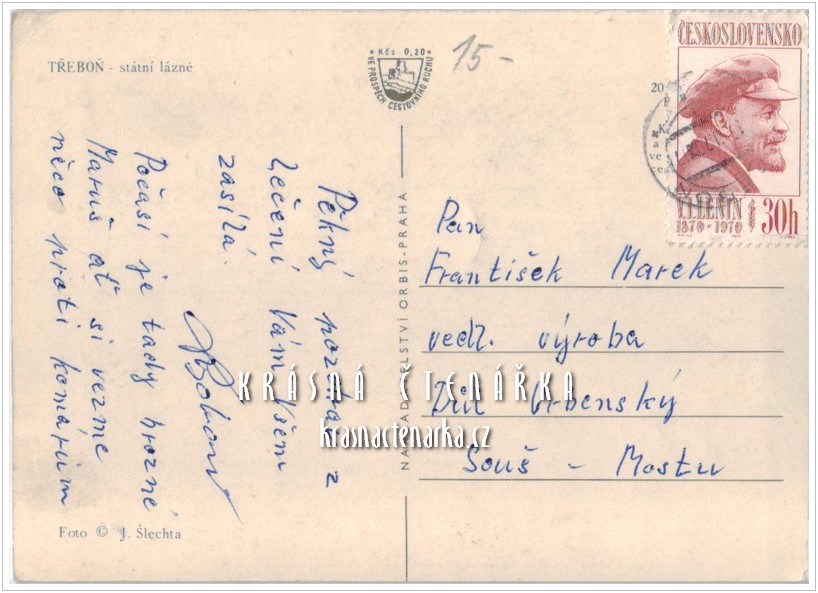 TŘEBOŇ - státní lázné
* Kčs 0,20 *
VE PROSPĚCH CESTOVNÍHO RUCHU
15-
ČESKOSLOVENSKO
V.I.LENIN
1870-1970
30h
Pěkný pozdrav z
léčení Vám všem
zasílá
Počasí je tady hrozné
Maruš ať si vezme
něco proti komárům
NAKLADATELSTVÍ ORBIS-PRAHA
Pan
František Marek
ved. výroba
Důl Vrbenský
Souš - Mostu
KRÁSNÁ ČTENÁŘKA
krasnactenarka.cz
Foto © J. Šlechta